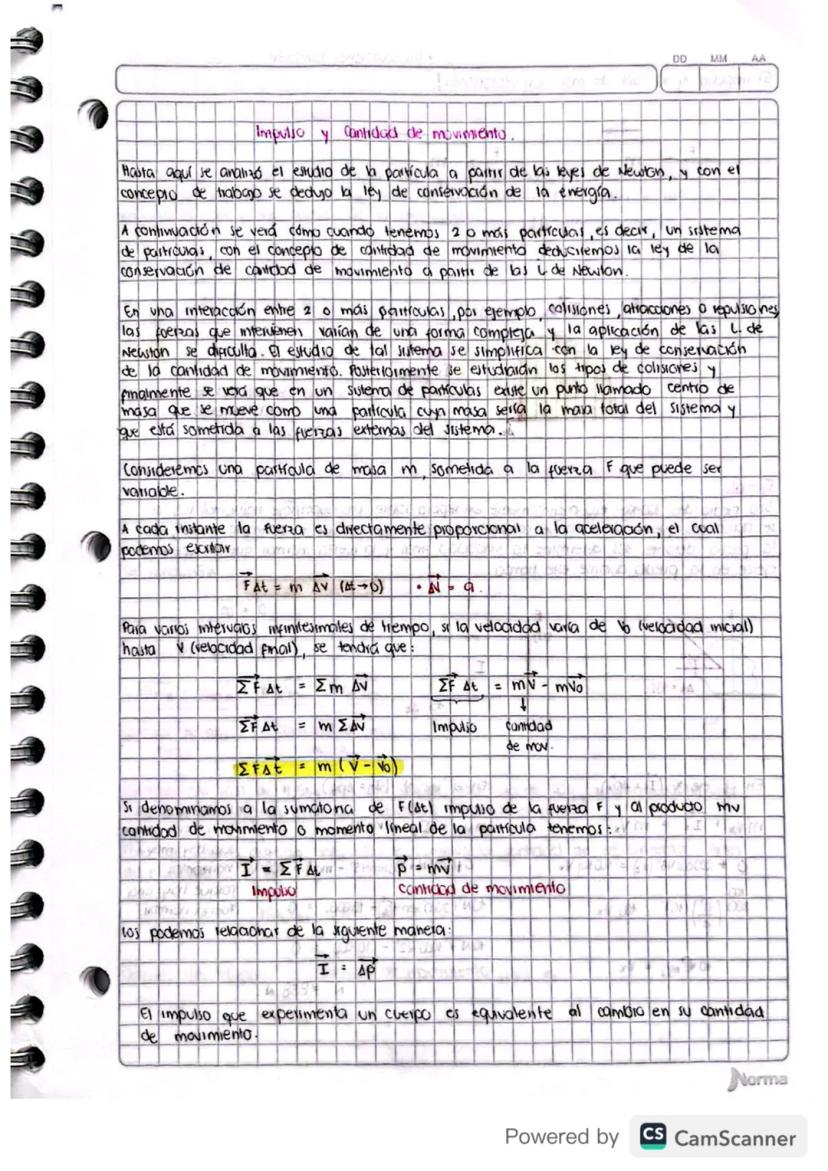 DD MM AA
Impulso y cantidad de movimiento.
Hasta aquí se analizó el estudio de la partícula a partir de las leyes de Newton, y con el
concepto de trabajo se dedujo la ley de conservación de la energía.
A continuación se verá cómo cuando tenemos 2 o más partículas, es decir, un sistema
de partículas, con el concepto de cantidad de movimiento deduciremos la ley de la
conservación de cantidad de movimiento a partir de las L de Newton.
En una interacción entre 2 o más partículas, por ejemplo, colisiones, atracciones o repulsiones,
las fuerzas que intervienen varían de una forma compleja y la aplicación de las L de
Newston se dificulta. El estudio de tal sistema se simplifica con la ley de conservación
de la cantidad de movimiento. Posteriormente se estudiarán los tipos de colisiones y
finalmente se verá que en un sistema de partículas existe un punto llamado centro de
masa que se mueve como una partícula cuya masa sería la masa total del sistema y
que está sometida a las fuerzas externas del sistema.
Consideremos una partícula de masa m, sometida a la fuerza F que puede ser
variable.
A cada instante la fuerza es directamente proporcional a la aceleración, el cual
podemos escribir
F⃗ Δt = m Δv⃗ (Δt→0)
Para varios intervalos infinitesimales de tiempo, si la velocidad varía de Vo (velocidad inicial)
hasta V (velocidad final), se tendrá que:
ΣF⃗ Δt = Σm Δv⃗ ΣF⃗ Δt = mv⃗ - mvo
ΣF⃗ Δt = m ΣΔv⃗ Impulso cantidad
de mov.
ΣFΔt⃗ = m (v⃗ - vo⃗)
Si denominamos a la sumatoria de F(Δt) impulso de la fuerza F y al producto mv
cantidad de movimiento o momento lineal de la partícula tenemos:
I⃗ = ΣF⃗ Δt p⃗ = mv⃗
Impulso cantidad de movimiento
los podemos relacionar de la siguiente manera:
I⃗ = Δp⃗
El impulso que experimenta un cuerpo es equivalente al cambio en su cantidad
de movimiento.
Norma
Powered by CS CamScanner